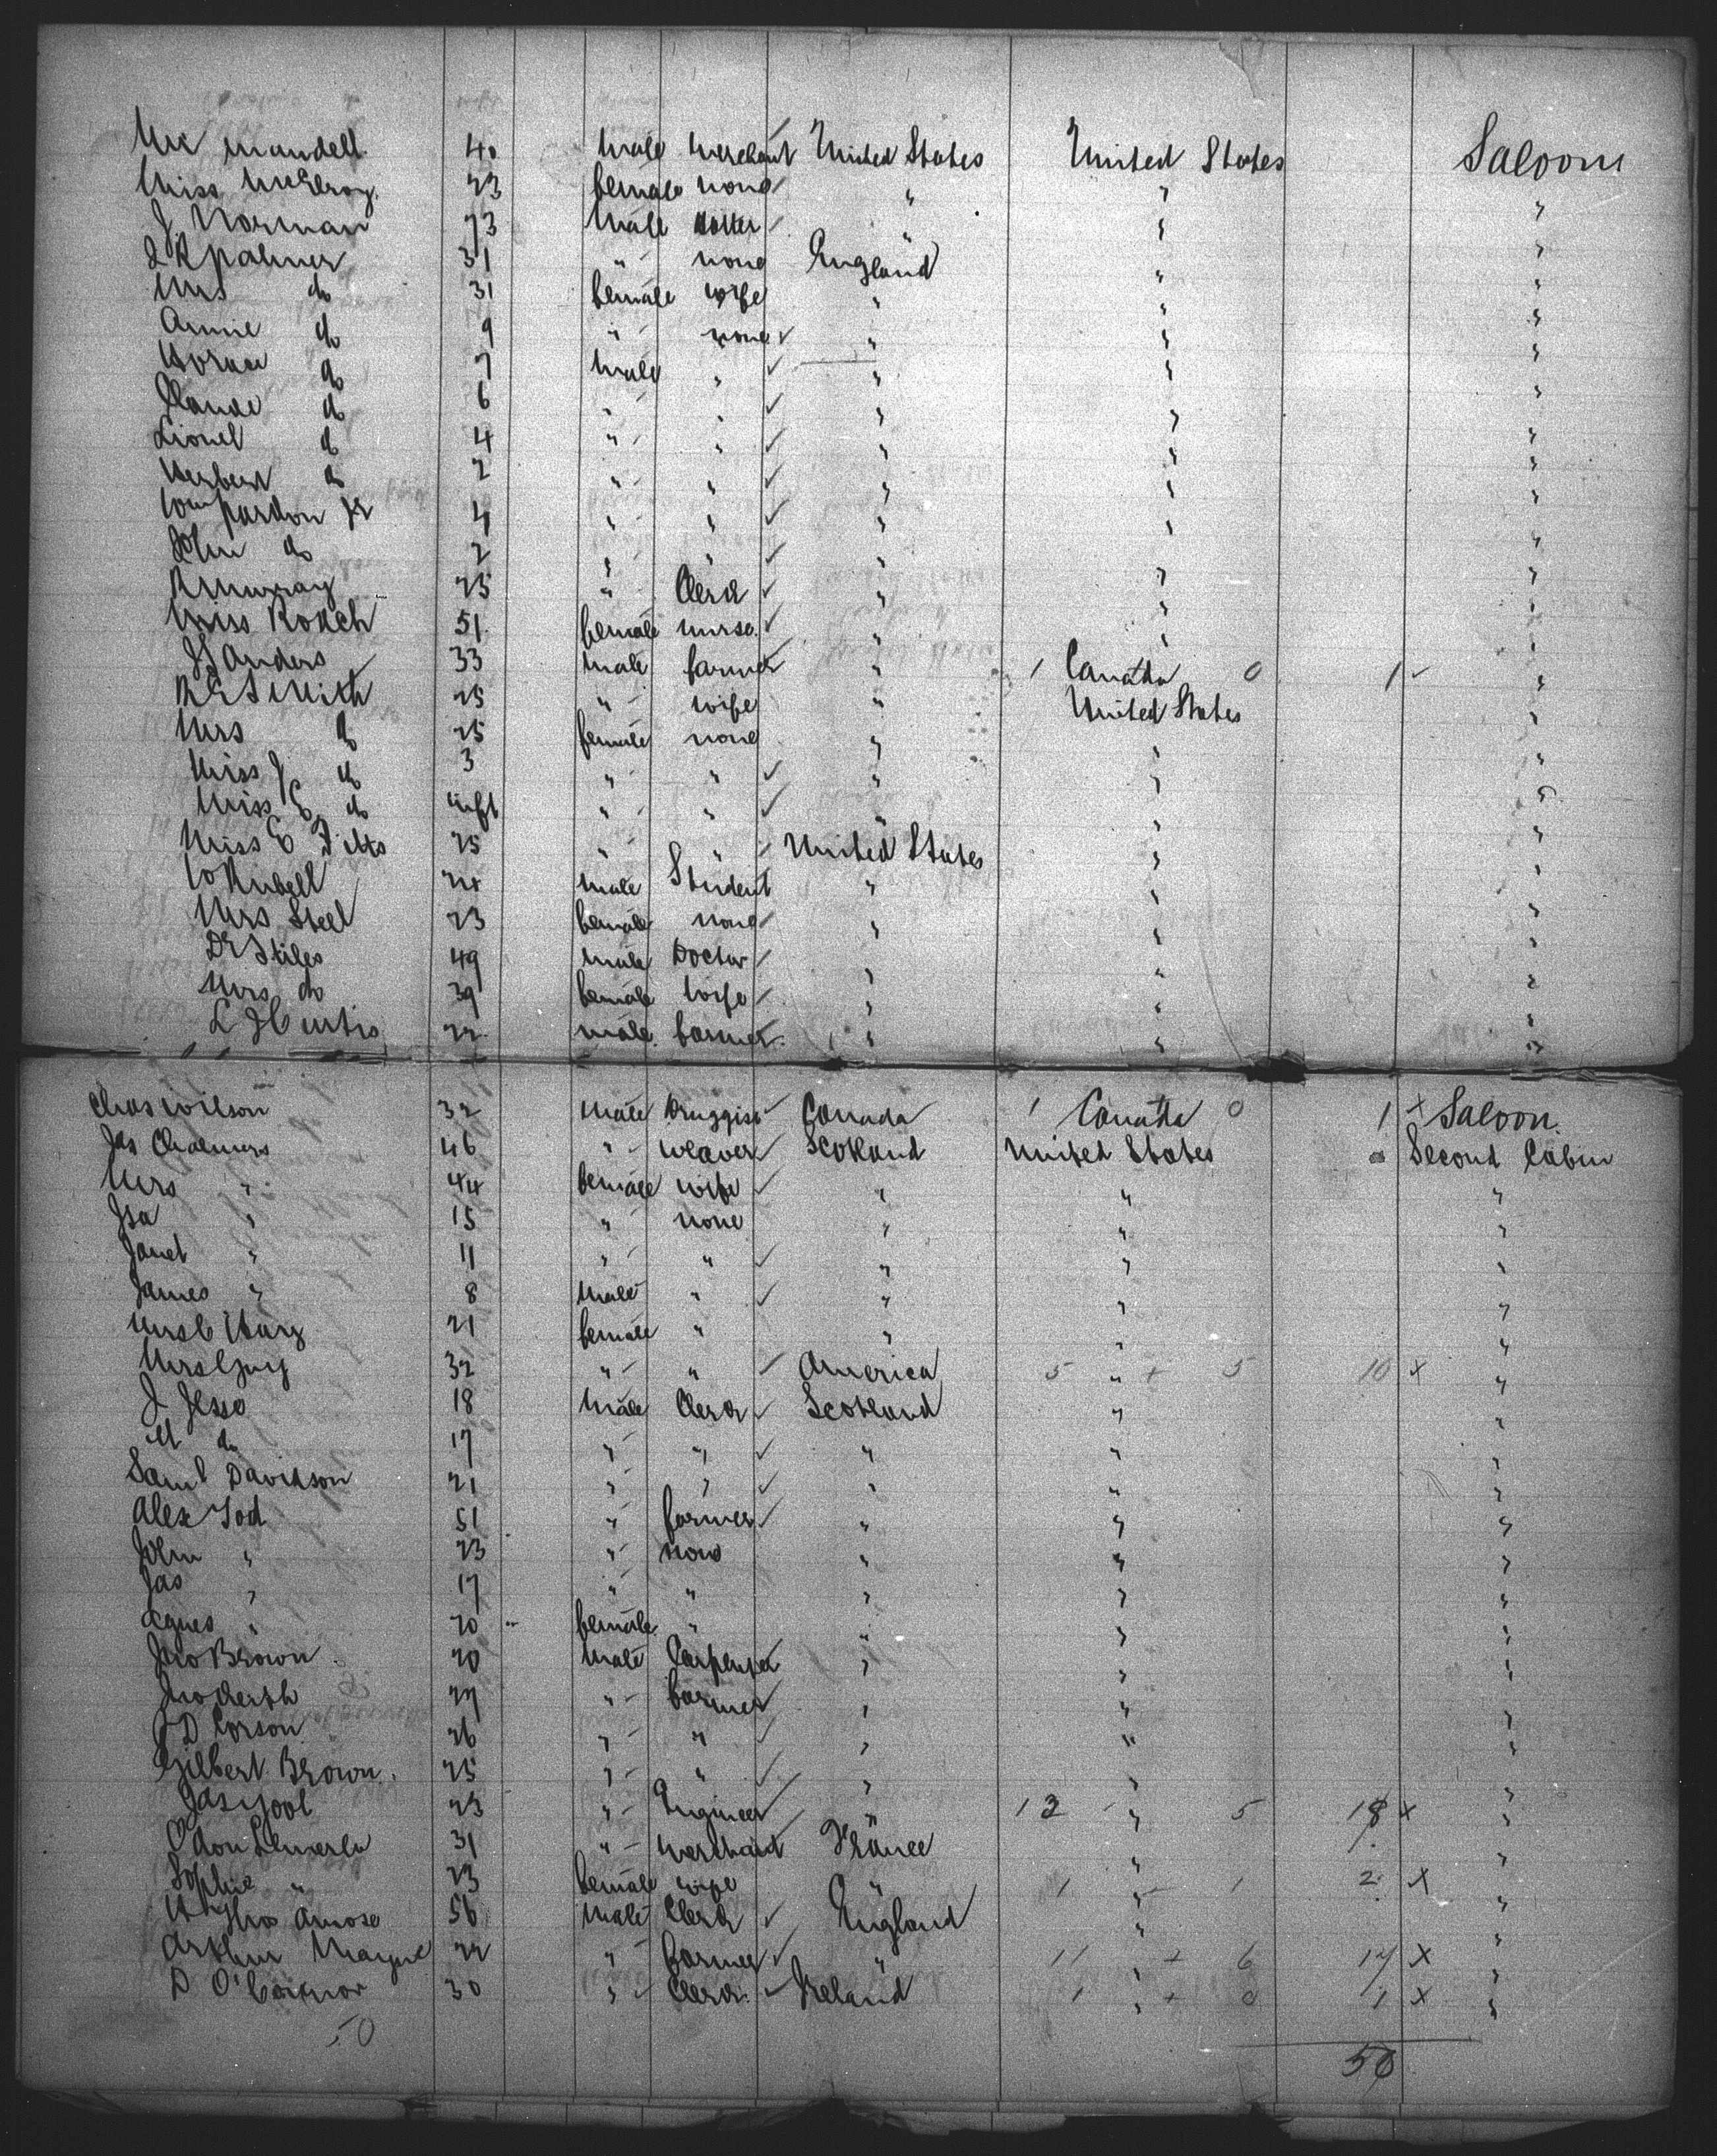 Mr Mandell 40 Male Merchant United States United States Saloon
Miss McElroy 23 female none " " "
J Norman 73 Male " "
J R Palmer 31 " none England " "
Mrs do 31 female wife " " "
Annie do 9 " none " " "
Horace do 7 Male " " " "
Claude do 6 " " " " "
Lionel do 4 " " " " "
Herbert do 2 " " " " "
Wm Pardon Jr 4 " " " " "
John do 2 " " " " "
R Murray 25 " Clerk " " "
Miss Roach 51 female nurse " " "
J J Anders 33 male farmer " 1 Canada 0 1 "
R E Smith 25 " wife " United States
Mrs do 25 female none " " "
Miss J do 3 " " " " "
Miss E do inft " " " " "
Miss E Fitts 25 " " United States " "
W Hubell 24 male Student " " "
Mrs Steel 23 female none " " "
Dr Stiles 49 male Doctor " " "
Mrs do 39 female wife " " "
L J Curtis 22 male farmer " " "
Chas Wilson 32 Male Druggist Canada 1 Canada 0 1 x Saloon
Jas Chalmers 46 " weaver Scotland United States Second Cabin
Mrs " 44 female wife " " "
Isa " 15 " none " " "
Janet " 11 " " " " "
James " 8 Male " " " "
Mrs C 21 female " " " "
Mrs 32 " " America 5 " + 5 10 x "
J Jesso 18 Male Clerk Scotland " "
M do 17 " " " " "
Saml Davidson 21 " " " " "
Alex Tod 51 " farmer " " "
John " 23 " none " " "
Jas " 17 " " " " "
Agnes " 20 female " " " "
Jno Brown 20 Male Carpenter " " "
Jno 27 " farmer " " "
J D Corson 26 " " " " "
Gilbert Brown 25 " " " " "
Jas Yool 23 " Engineer " 13 " 5 18 x "
31 " Merchant France " "
Sophie " 23 female wife " 1 " 1 2 x "
Amose 56 Male Clerk England " "
Arthur Mayne 22 " farmer " 11 " + 6 17 x "
D O'Connor 30 " Clerk Ireland 1 " + 0 1 x "
50 50